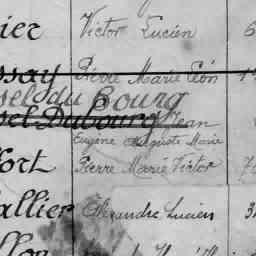 ier Victor Lucien 6
ssay Pierre Marie Léon
sel du Bourg
sel Dubourg Jean
Eugène Auguste Marie
fort Pierre Marie Victor 7
allier Alexandre Lucien 3